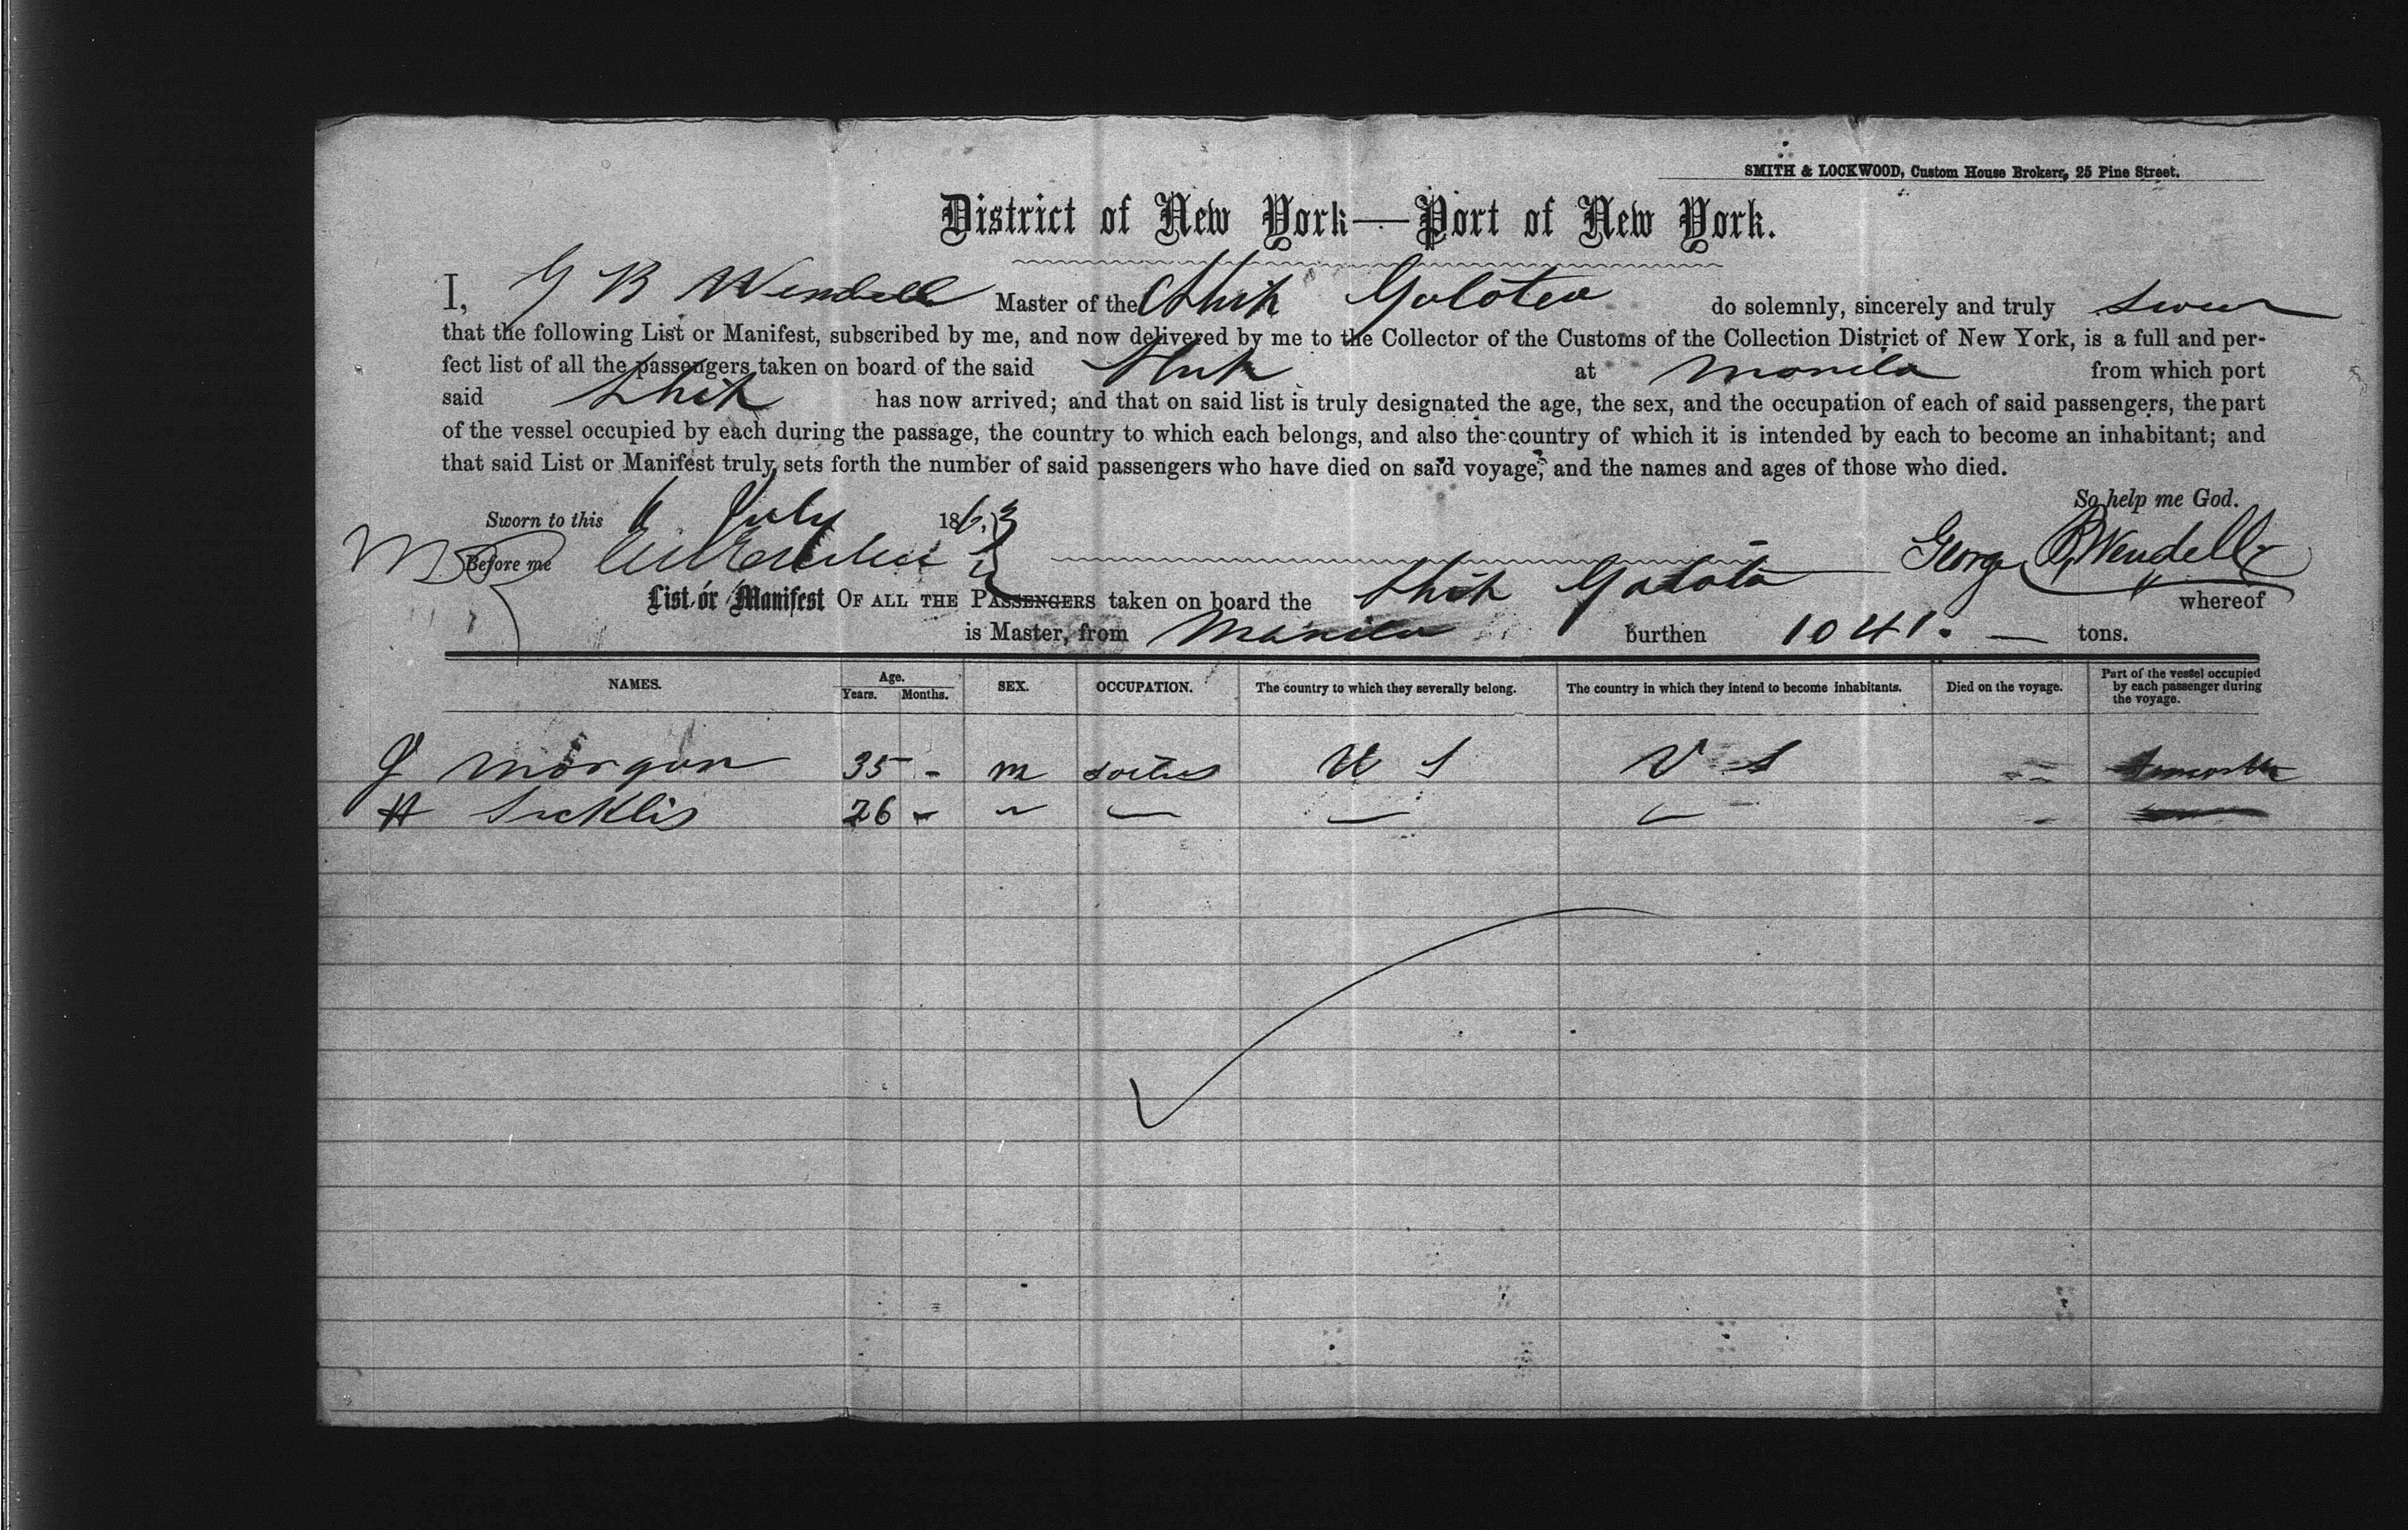 SMITH & LOCKWOOD, Custom House Brokers, 25 Pine Street.
District of New York—Port of New York.
I, G B Wendell Master of the Ship Galatea do solemnly, sincerely and truly swear
that the following List or Manifest, subscribed by me, and now delivered by me to the Collector of the Customs of the Collection District of New York, is a full and per-
fect list of all the passengers taken on board of the said Ship at Manila from which port
said Ship has now arrived; and that on said list is truly designated the age, the sex, and the occupation of each of said passengers, the part
of the vessel occupied by each during the passage, the country to which each belongs, and also the country of which it is intended by each to become an inhabitant; and
that said List or Manifest truly sets forth the number of said passengers who have died on said voyage, and the names and ages of those who died.
So help me God.
Sworn to this July 1863
Before me George B Wendell
List or Manifest OF ALL THE PASSENGERS taken on board the Ship Galatea whereof
is Master, from Manila burthen 1041. — tons.
NAMES. Age. Years. Months. SEX. OCCUPATION. The country to which they severally belong. The country in which they intend to become inhabitants. Died on the voyage. Part of the vessel occupied by each passenger during the voyage.
J Morgan 35 - m U S U S
H 26 -